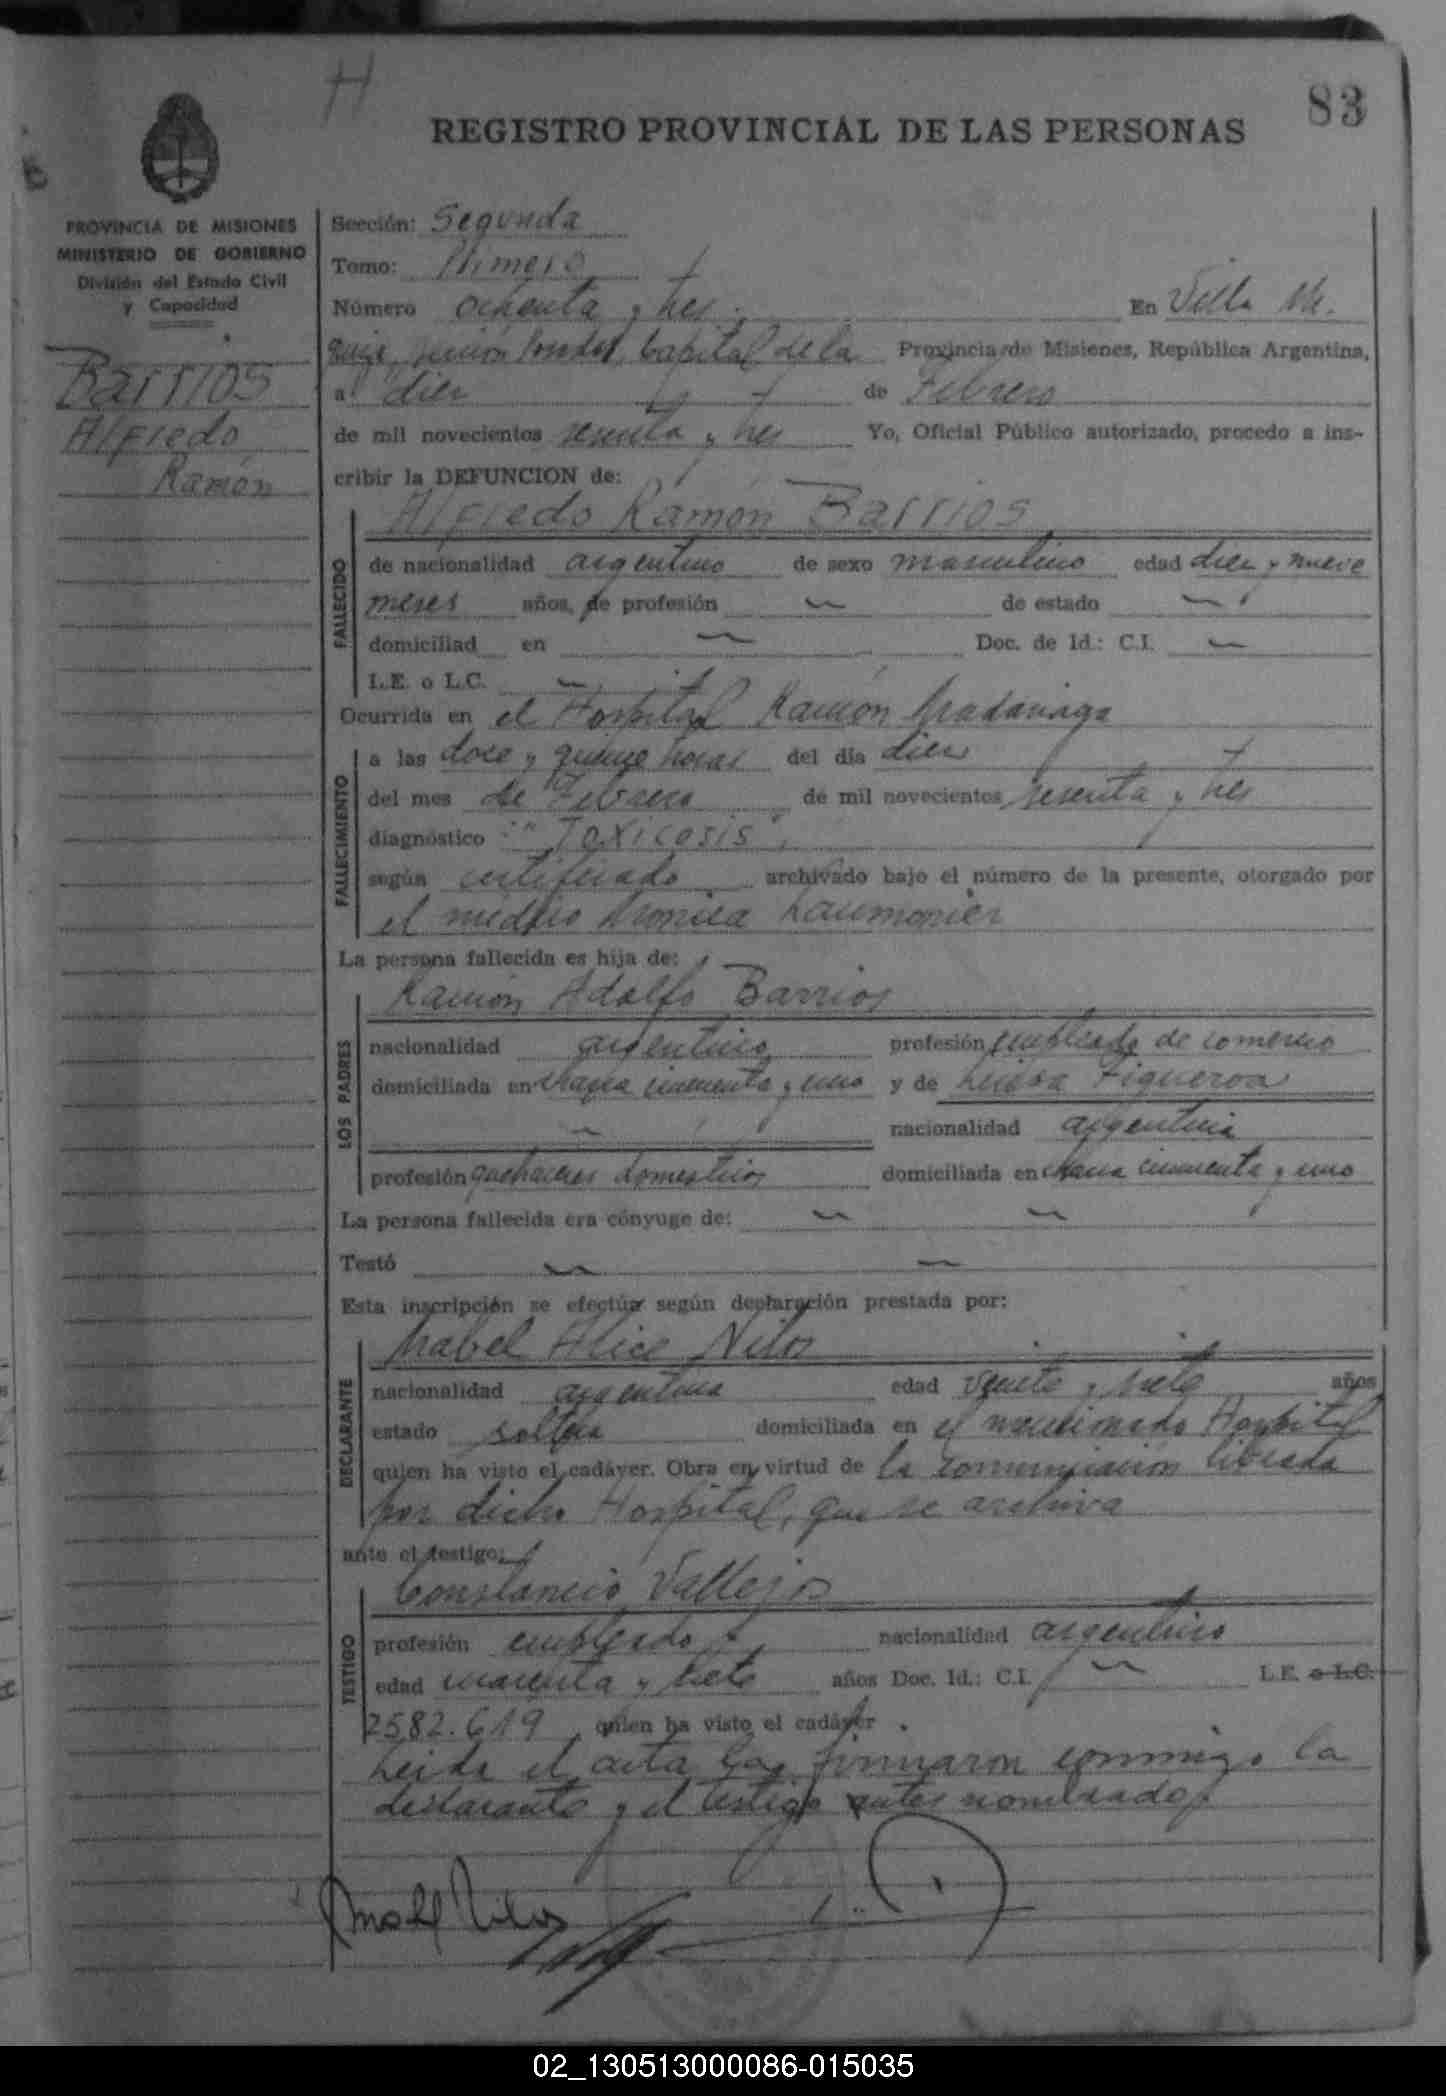 H
83
REGISTRO PROVINCIAL DE LAS PERSONAS
PROVINCIA DE MISIONES
MINISTERIO DE GOBIERNO
División del Estado Civil
y Capacidad
Barrios
Alfredo
Ramón
Sección: Segunda
Tomo: Primero
Número ochenta y tres. En Villa
Capital de la Provincia de Misiones, República Argentina,
a diez de Febrero
de mil novecientos sesenta y tres Yo, Oficial Público autorizado, procedo a ins-
cribir la DEFUNCION de:
Alfredo Ramón Barrios
FALLECIDO
de nacionalidad argentino de sexo masculino edad diez y nueve
meses años, de profesión de estado
domiciliad en Doc. de Id.: C.I.
L.E. o L.C.
Ocurrida en el Hospital Ramón Madariaga
FALLECIMIENTO
a las doce y quince horas del día diez
del mes de Febrero de mil novecientos sesenta y tres
diagnóstico "Toxicosis".
según certificado archivado bajo el número de la presente, otorgado por
el médico Laumonier
La persona fallecida es hija de:
LOS PADRES
Ramón Adolfo Barrios
nacionalidad argentino profesión empleado de comercio
domiciliada en chacra cincuenta y uno y de Luisa Figueroa
nacionalidad argentina
profesión quehaceres domésticos domiciliada en chacra cincuenta y uno
La persona fallecida era cónyuge de:
Testó
Esta inscripción se efectúa según declaración prestada por:
DECLARANTE
Mabel Alice Nilos
nacionalidad argentina edad veinte y siete años
estado soltera domiciliada en el mencionado Hospital
quien ha visto el cadáver. Obra en virtud de la comunicación librada
por dicho Hospital, que se archiva
ante el testigo:
TESTIGO
Constancio Vallejos
profesión empleado nacionalidad argentino
edad cuarenta y siete años Doc. Id.: C.I. L.E. o L.C.
2582.619 quien ha visto el cadáver.
Leída el acta la firmaron conmigo la
declarante y el testigo antes nombrados
02_130513000086-015035